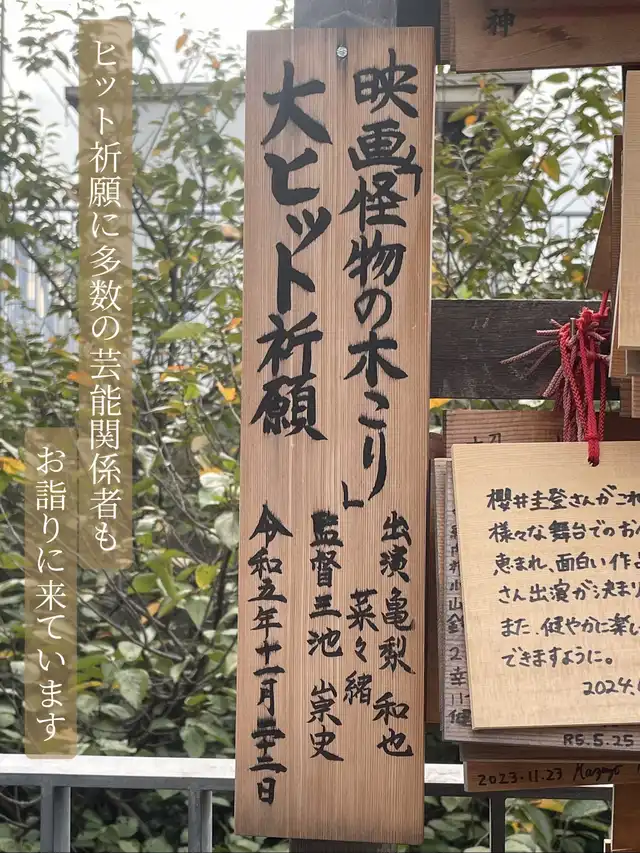 ヒット祈願に多数の芸能関係者も
お詣りに来ています
映画「怪物の木こり」
大ヒット祈願
出演 亀梨 和也
菜々緒
監督 三池 崇史
令和五年十一月二十二日
神
櫻井圭登さんがこれ
様々な舞台でのお
恵まれ、面白い作
さん出演が決まり
また、健やかに楽し
できますように。
2024.
R5.5.25
2023.11.23